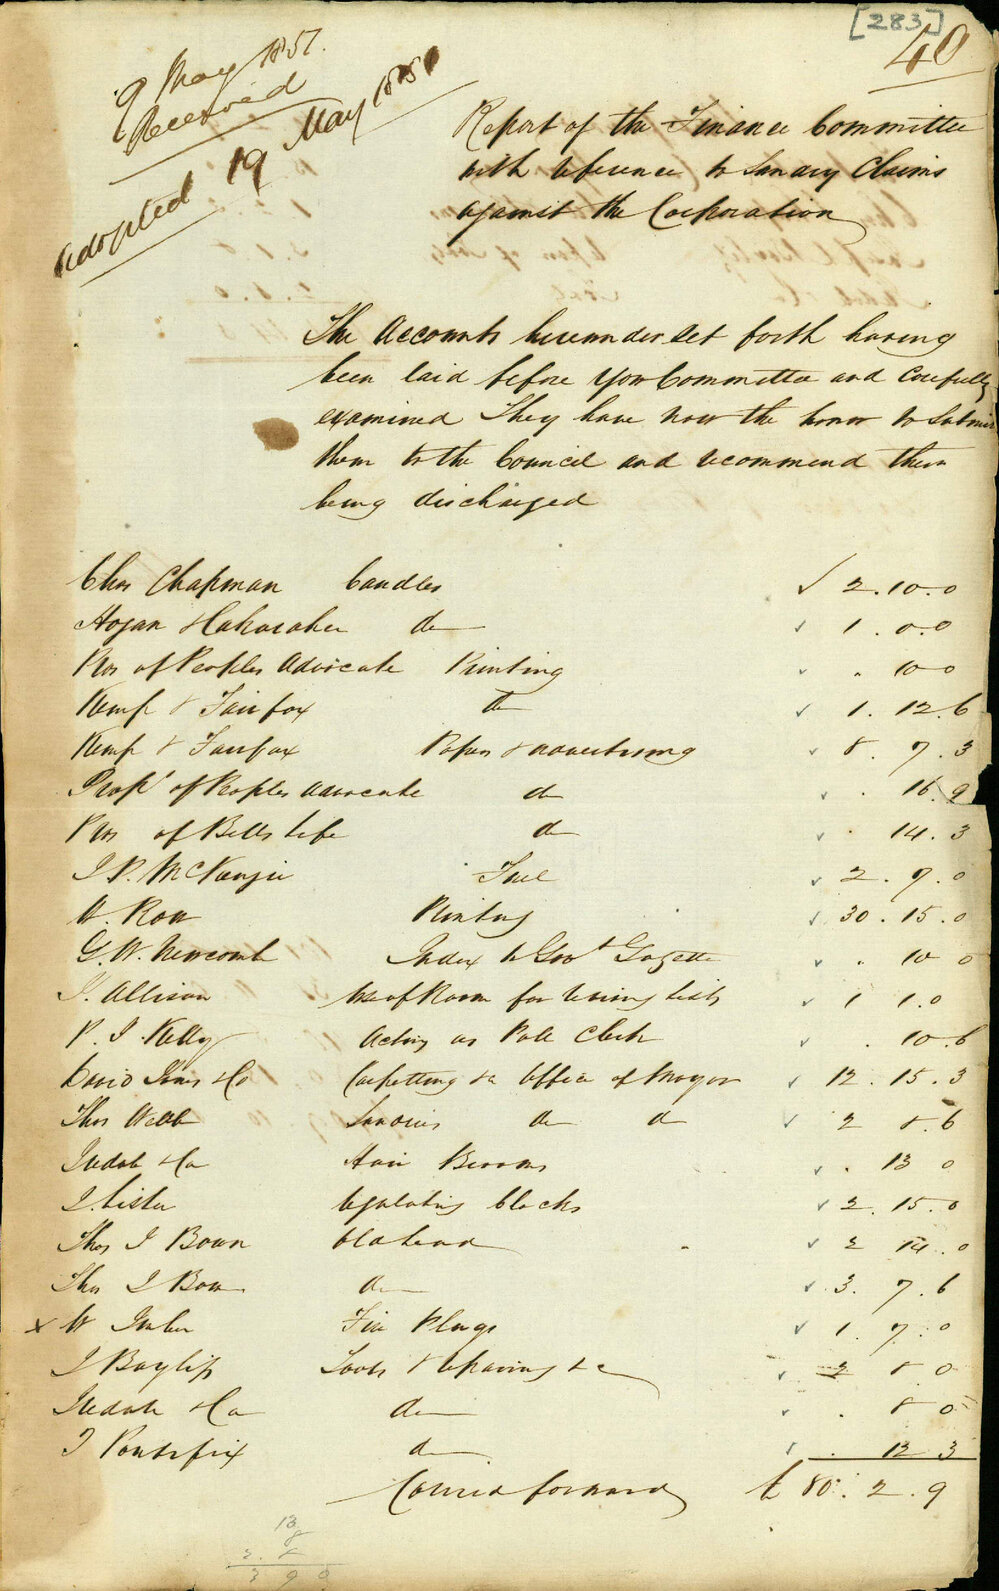 [283]
40
9 May 1851.
Received
Adopted 19 May 1851
Report of the Finance Committee
with reference to Sundry Claims
against the Corporation
The Accounts hereunder set forth having
been laid before your Committee and Carefully
examined They have now the honor to Submit
them to the Council and recommend them
being discharged
Chas Chapman Candles ✓ 2.10.0
Hogan & do ✓ 1.0.0
Prs of Peoples Advocate Printing ✓ . 10 0
Kemp & Fairfax do ✓ 1.12.6
Kemp & Fairfax Paper & advertising ✓ 8.7.3
Propr of Peoples Advocate do ✓ . 16.9
Prs of Bells Life do ✓ . 14.3
J. P. McKenzie Fuel ✓ 2.7.0
W. Row Printing ✓ 30.15.0
G. W. Newcomb Index to Govt Gazette ✓ . 10 0
J. Allison Use of Room for revising Lists ✓ 1 1.0
P. J. Kelly Acting as Poll Clerk ✓ . 10.6
David Jones & Co Carpetting &c Office of Mayor ✓ 12.15.3
Thos Webb Sundries do do ✓ 2 8.6
Iredale & Co Hair Brooms ✓ . 13 0
J. Lister regulating Clocks ✓ 2.15.0
Thos J Bown Oil ✓ 2 14.0
Thos J Bown do ✓ 3.7.6
x W Fire Plugs ✓ 1.7.0
J Bayliss Tools & repairing &c ✓ 2 8.0
Iredale & Co do ✓ . 8 0
J Pontifix do ✓ . 12 3
Carried forward £ 80.2.9
13
8
2.8
3 9 0